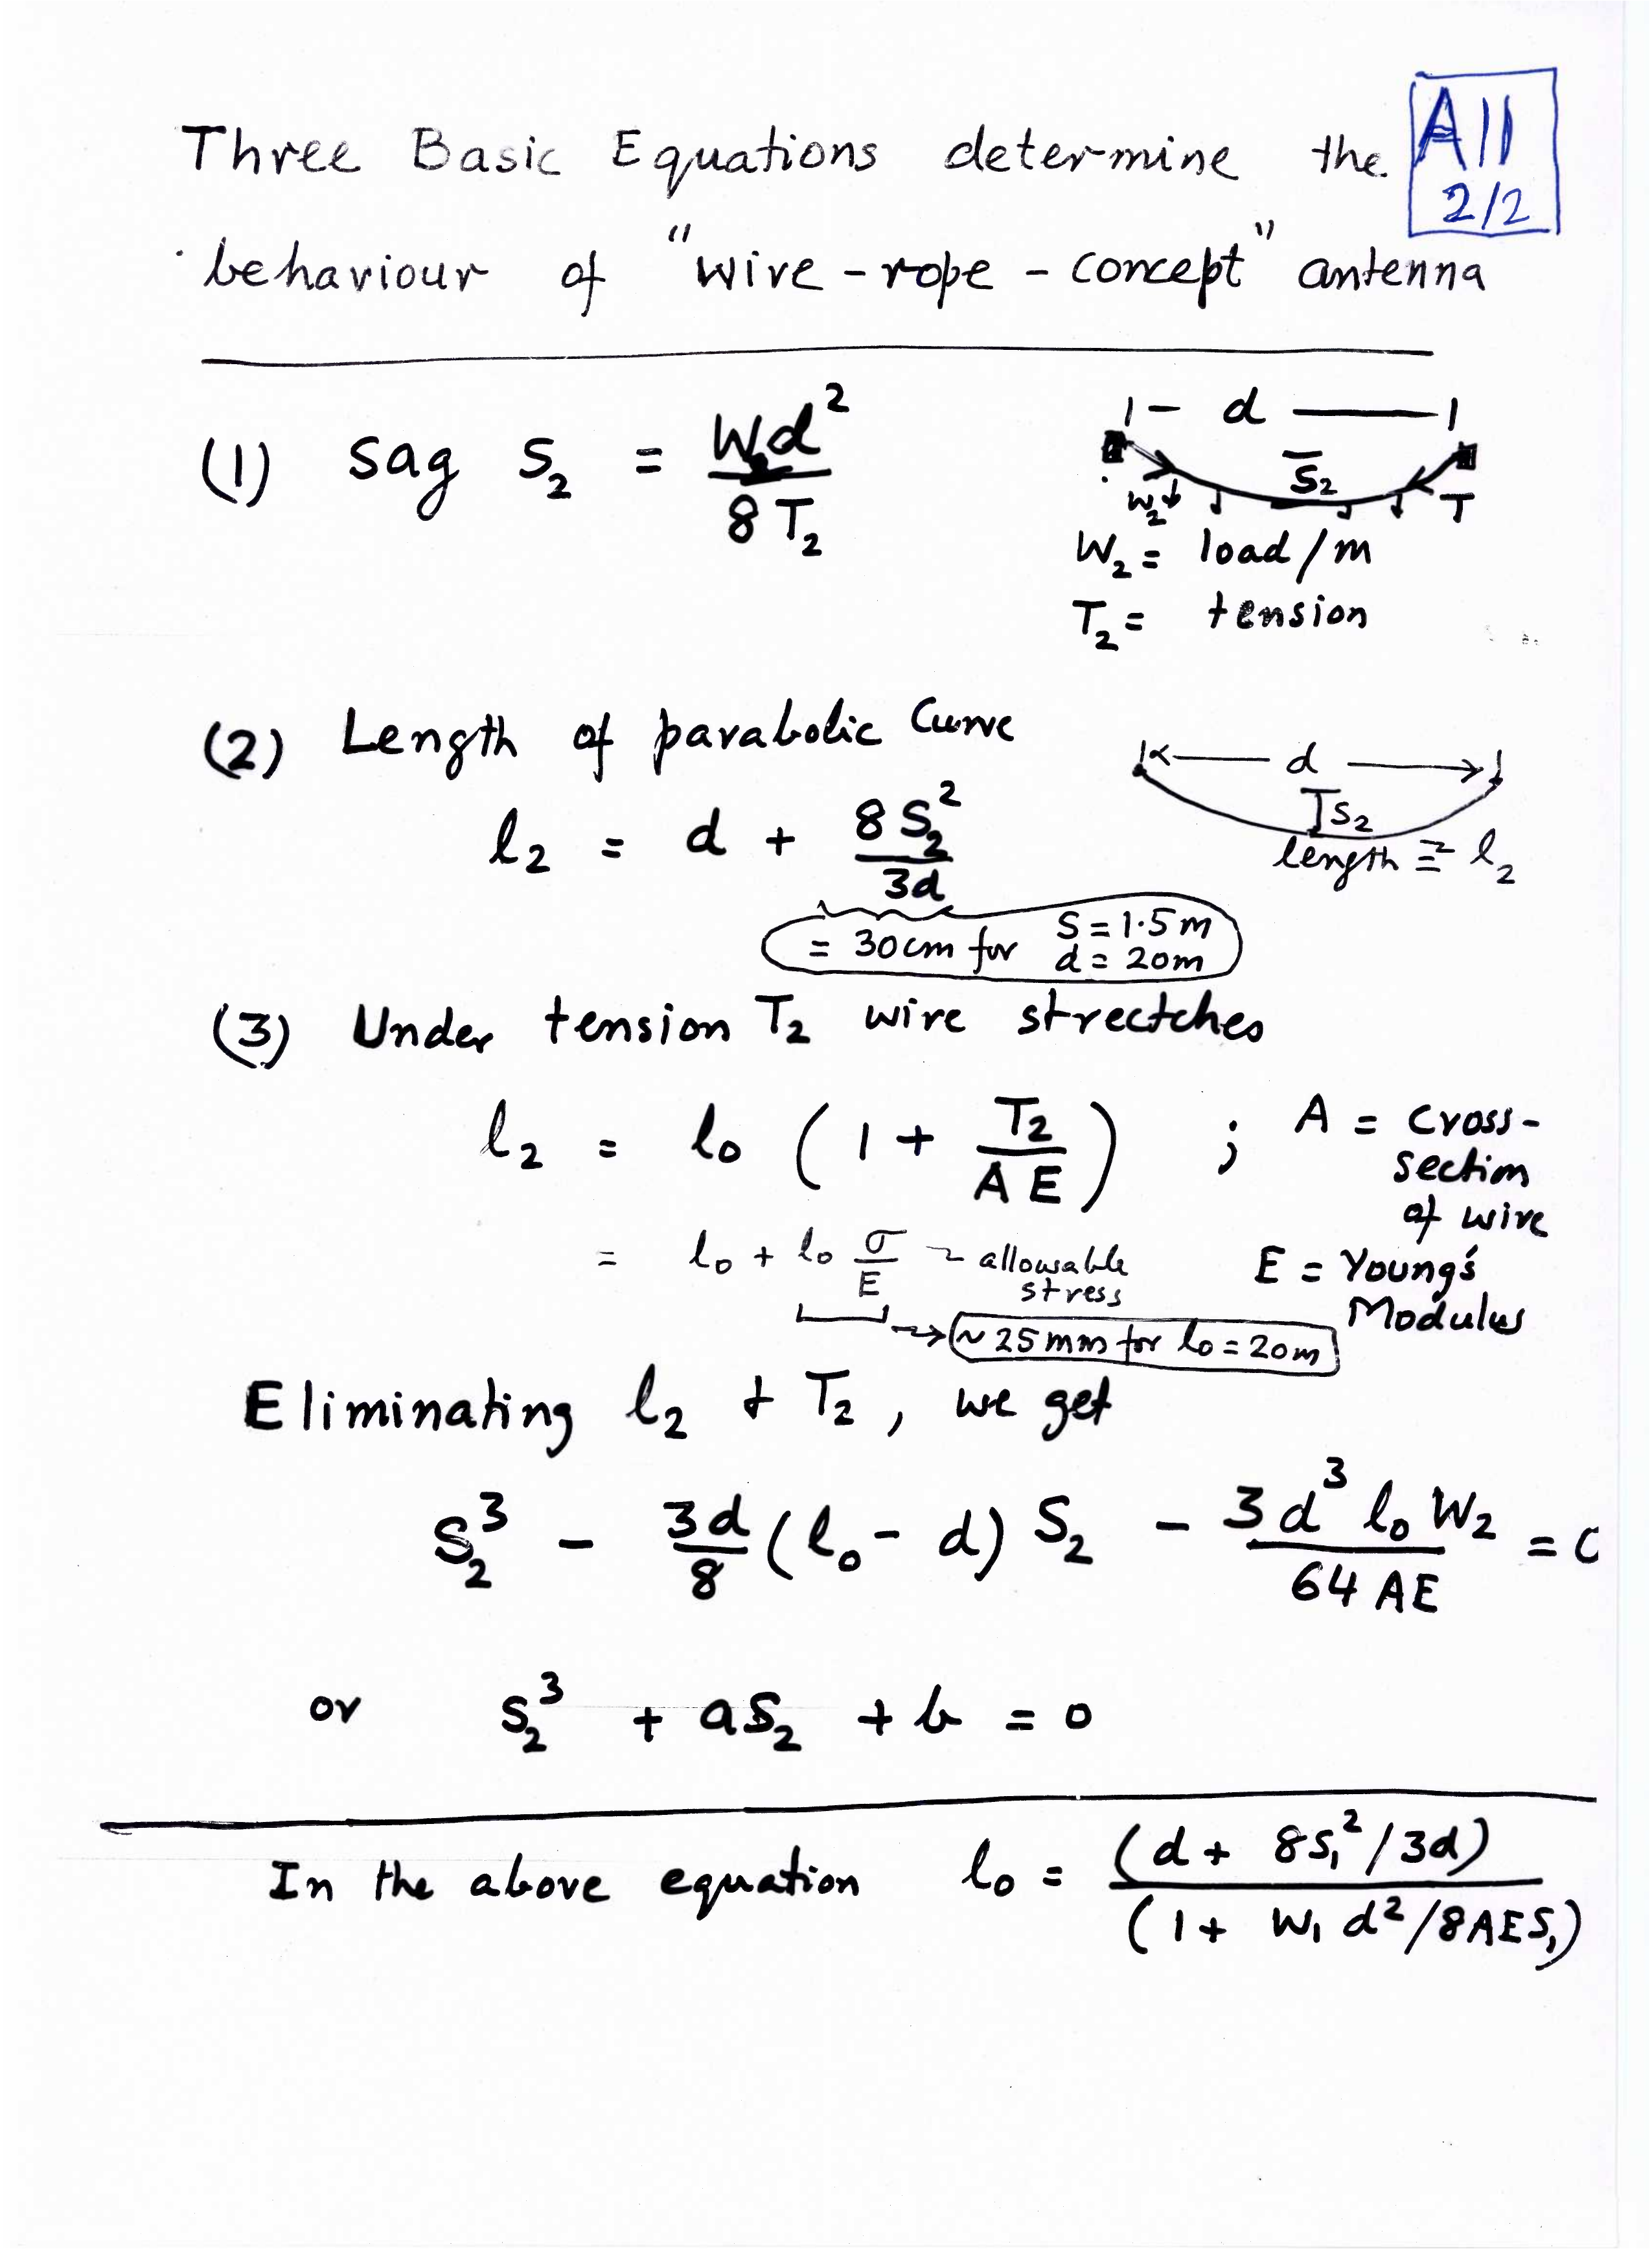 Three Basic Equations determine the
A11
2/2
behaviour of "wire-rope-concept" antenna
(1) Sag S₂ = W₂d² / 8T₂
|— d ———|
S₂
W₂ T
W₂ = load/m
T₂ = tension
(2) Length of parabolic Curve
l₂ = d + 8S₂² / 3d
d
S₂
length ≡ l₂
= 30cm for S = 1.5m
d = 20m
(3) Under tension T₂ wire strectches
l₂ = l₀ (1 + T₂ / AE) ; A = Cross-
section
of wire
= l₀ + l₀ σ/E ~ allowable
stress
E = Young's
Modulus
→ ~25mm for l₀ = 20m
Eliminating l₂ + T₂, we get
S₂³ - 3d/8 (l₀ - d) S₂ - 3d³ l₀ W₂ / 64 AE = 0
or S₂³ + aS₂ + b = 0
In the above equation l₀ = (d + 8S₁²/3d) / (1 + W₁ d²/8AES₁)